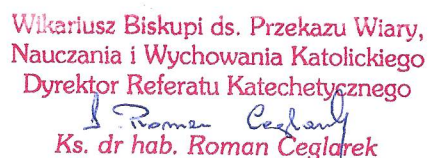 Wikariusz Biskupi ds. Przekazu Wiary,
Nauczania i Wychowania Katolickiego
Dyrektor Referatu Katechetycznego
Roman Ceglarek
Ks. dr hab. Roman Ceglarek